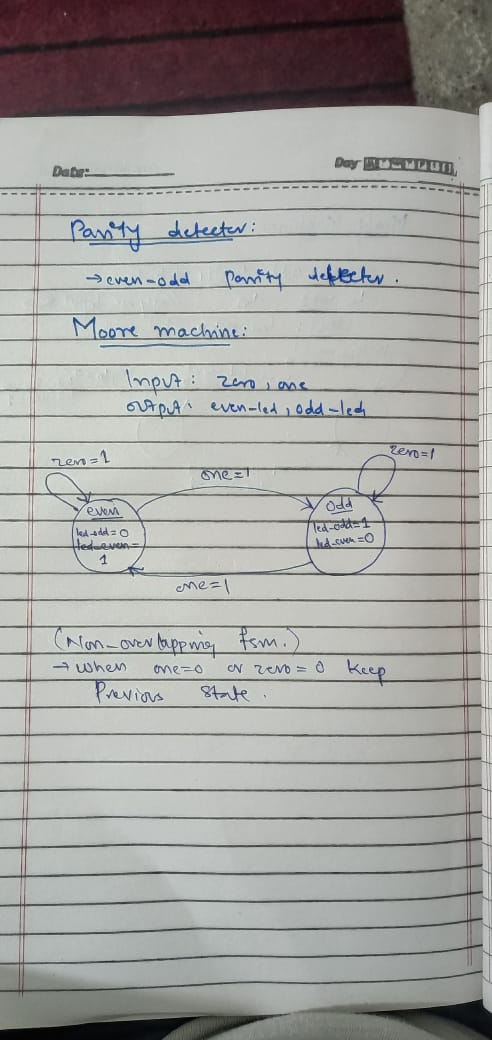 Date:
Day
Parity detector:
→ even-odd Parity detector.
Moore machine:
Input: zero, one
output: even-led, odd-led
zero=1
one=1
zero=1
even
led-odd=0
led-even=
1
odd
led-odd=1
led-even=0
one=1
(Non-overlapping fsm.)
→ when one=0 or zero=0 Keep
Previous State.